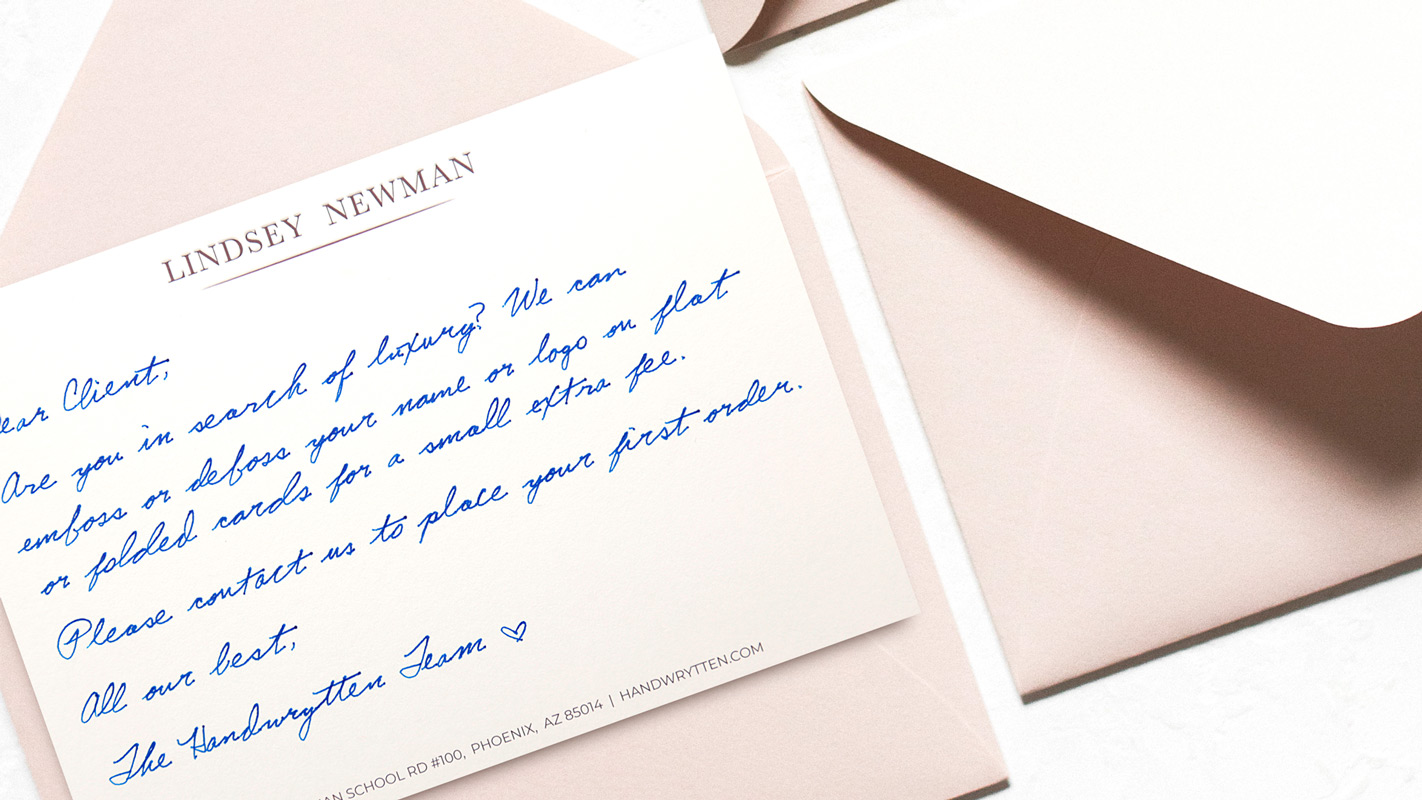 LINDSEY NEWMAN
ear Client,
Are you in search of luxury? We can
emboss or deboss your name or logo on flat
or folded cards for a small extra fee.
Please contact us to place your first order.
All our best,
The Handwrytten Team ♡
AN SCHOOL RD #100, PHOENIX, AZ 85014 | HANDWRYTTEN.COM